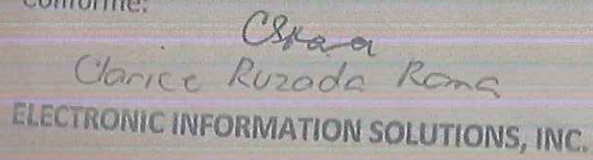 Conforme:
Clarice Ruzoda Roma
ELECTRONIC INFORMATION SOLUTIONS, INC.